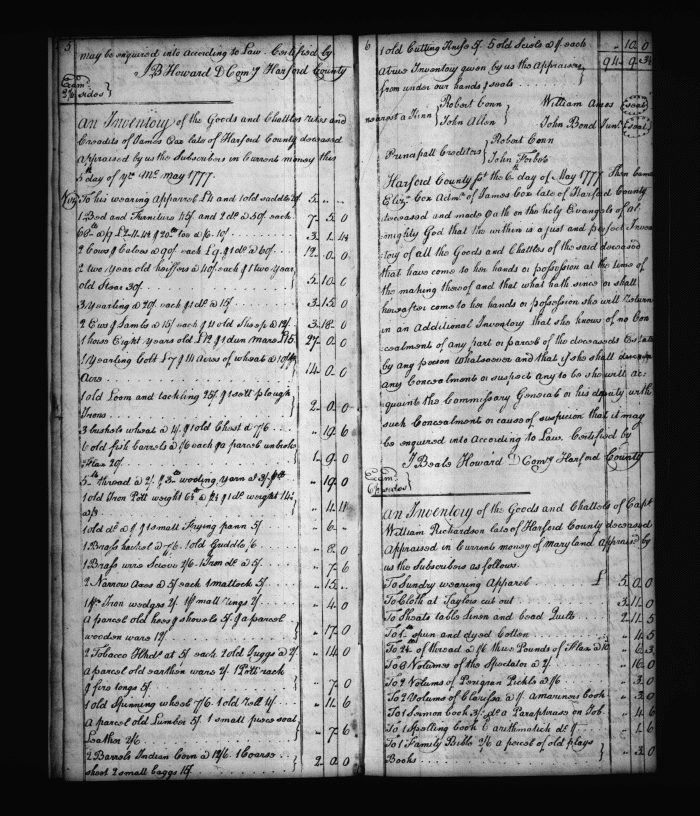 5
may be enquired into According to Law. Certified by
J B Howard D Comy Harford County
Exam.d
sides
An Inventory of the Goods and Chattles rites and
Creadits of James Cox late of Harford County deceased
appraised by us the Subscribers in Current money this
5th day of May 1777
To his wearing Apparel £4 and 1 old saddle 20/ 5 .. ..
1 Bed and Furniture 45/ and 2 do a 50/ each 7 .. 5 .. 0
3 .. 1 .. 4½
2 Cows & Calves a 90/ each £9 & 1 do a 60/ 12 .. 0 .. 0
2 two year old heiffers a 40/ each & 1 two year
old Steer 30/ 5 .. 10 .. 0
3 yearling a 20/ each & 1 do a 15/ 3 .. 15 .. 0
2 Ews & Lambs a 15/ each & 4 old Sheep a 12/ 3 .. 18 .. 0
1 horse Eight years old £12 & 1 dun mare £15 27 .. 0 .. 0
1 Yearling Colt £7 & 14 Acres of wheat a 10/ pr
Acre 14 .. 0 .. 0
1 old Loom and tackling 25/ & 1 sett plough
Irons 2 .. 0 .. 0
3 bushels wheat a 4/ & 1 old Chest a 7/6 .. 19 .. 6
6 old fish barrels a 1/6 each & a parcel unbroke
Flax 20/ 1 .. 9 .. 0
5 lb thread a 2/ & 3 lb wooling yarn a 3/ .. 19 .. 0
1 old Iron Pott weight & 1 do weight 14
.. 4 .. 11
1 old do a 1/ & 1 small frying pann 5/ .. 6 ..
1 Brass hackel a 7/6 1 old Griddle /6 .. 8 .. 0
1 Brass wire Seive 2/6 1 Iron do a 5/ .. 7 .. 6
2 Narrow Axes a 5/ each 1 mattock 5/ .. 15 ..
1 pr Iron wedges 2/ 1 small rings 2/ .. 4 .. 0
A parcel old hoes & shovels 5/ & a parcel
wooden ware 12/ .. 17 .. 0
2 Tobacco Hhds at 5/ each 2 old Juggs a 2/ .. 14 .. 0
A parcel old earthen ware 2/ 1 Pott rack
& fire tongs 5/ .. 7 .. 0
1 old Spinning wheel 7/6 1 old Reel 4/ .. 11 .. 6
A parcel old Lumber 5/ 1 small piece seat
Leather 2/6 .. 7 .. 6
2 Barrels Indian Corn a 12/6 1 Coarse
sheet 2 small baggs 15/ 2 .. 0 .. 0
6
1 old Cutting Knife 5/ 5 old Seiols a 1/ each .. 10 .. 0
A true Inventory given by us the Appraisers 94 .. 9 .. 3½
from under our hands & seals
nearest a Kinn { Robert Conn William Amos (seal)
John Allen John Bond Junr (seal)
Prinapall Creditors { Robert Conn
John Forbes
Harford County sst the 6th day of May 1777 Then came
Eliz. Cox Admx of James Cox late of Harford County
deceased and made oath on the holy Evangels of al
mighty God that the within is a just and perfect Inven
tory of all the Goods and Chattles of the said deceased
that have come to her hands or possession at the time of
the making thereof and that what hath since or shall
hereafter come to her hands or possession she will Return
in an Additional Inventory that she knows of no Con
cealment of any part or parcel of the deceaseds Estate
by any person whatsoever and that if she shall discover
any Concealment or suspect any to be she will ac
quaint the Commissary General or his deputy with
such Concealment or cause of suspicion that it may
be enquired into According to Law. Certified by
J Beals Howard D Comy Harford County
Exam.d
sides
An Inventory of the Goods and Chattels of Capt
William Richardson late of Harford County deceased
Appraised in Current money of maryland Appraised by
us the Subscribers as follows
To Sundry wearing Apparel £ 5 .. 0 .. 0
To Cloth at Taylors cut out 3 .. 11 .. 0
To Sheets table Linen and bead Quilt 2 .. 11 .. 5
To 1 lb spun and dyed Cotton .. 4 .. 5
To 2½ of thread a 1/6 three Pounds of Flax a 10 .. 6 .. 3
To 8 Volumes of the Spectator a 2/ .. 16 .. 0
To 2 Volums of Perigrin Pickle a 1/6 .. 3 .. 0
To 2 Volums of Clarissa a 1/ Amariners book .. 3 .. 0
To 1 Sermon book 3/ do a Paraphrass on Job .. 4 .. 6
To 1 Spelling book & arithmatick do 1/ .. 1 .. 6
To 1 Family Bible 2/6 a parcel of old plays
Books .. 3 .. 0